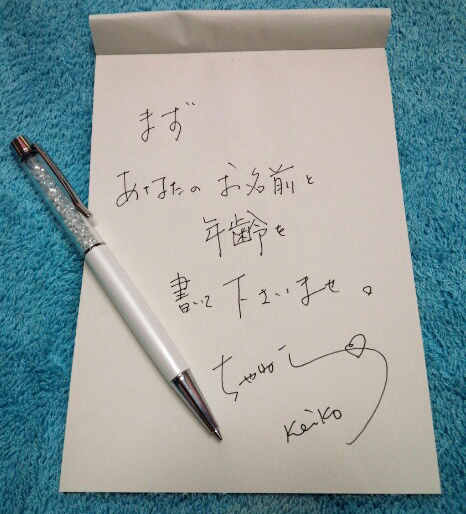 まず
あなたの お名前と
年齢を
書いて下さいませ。
Keiko